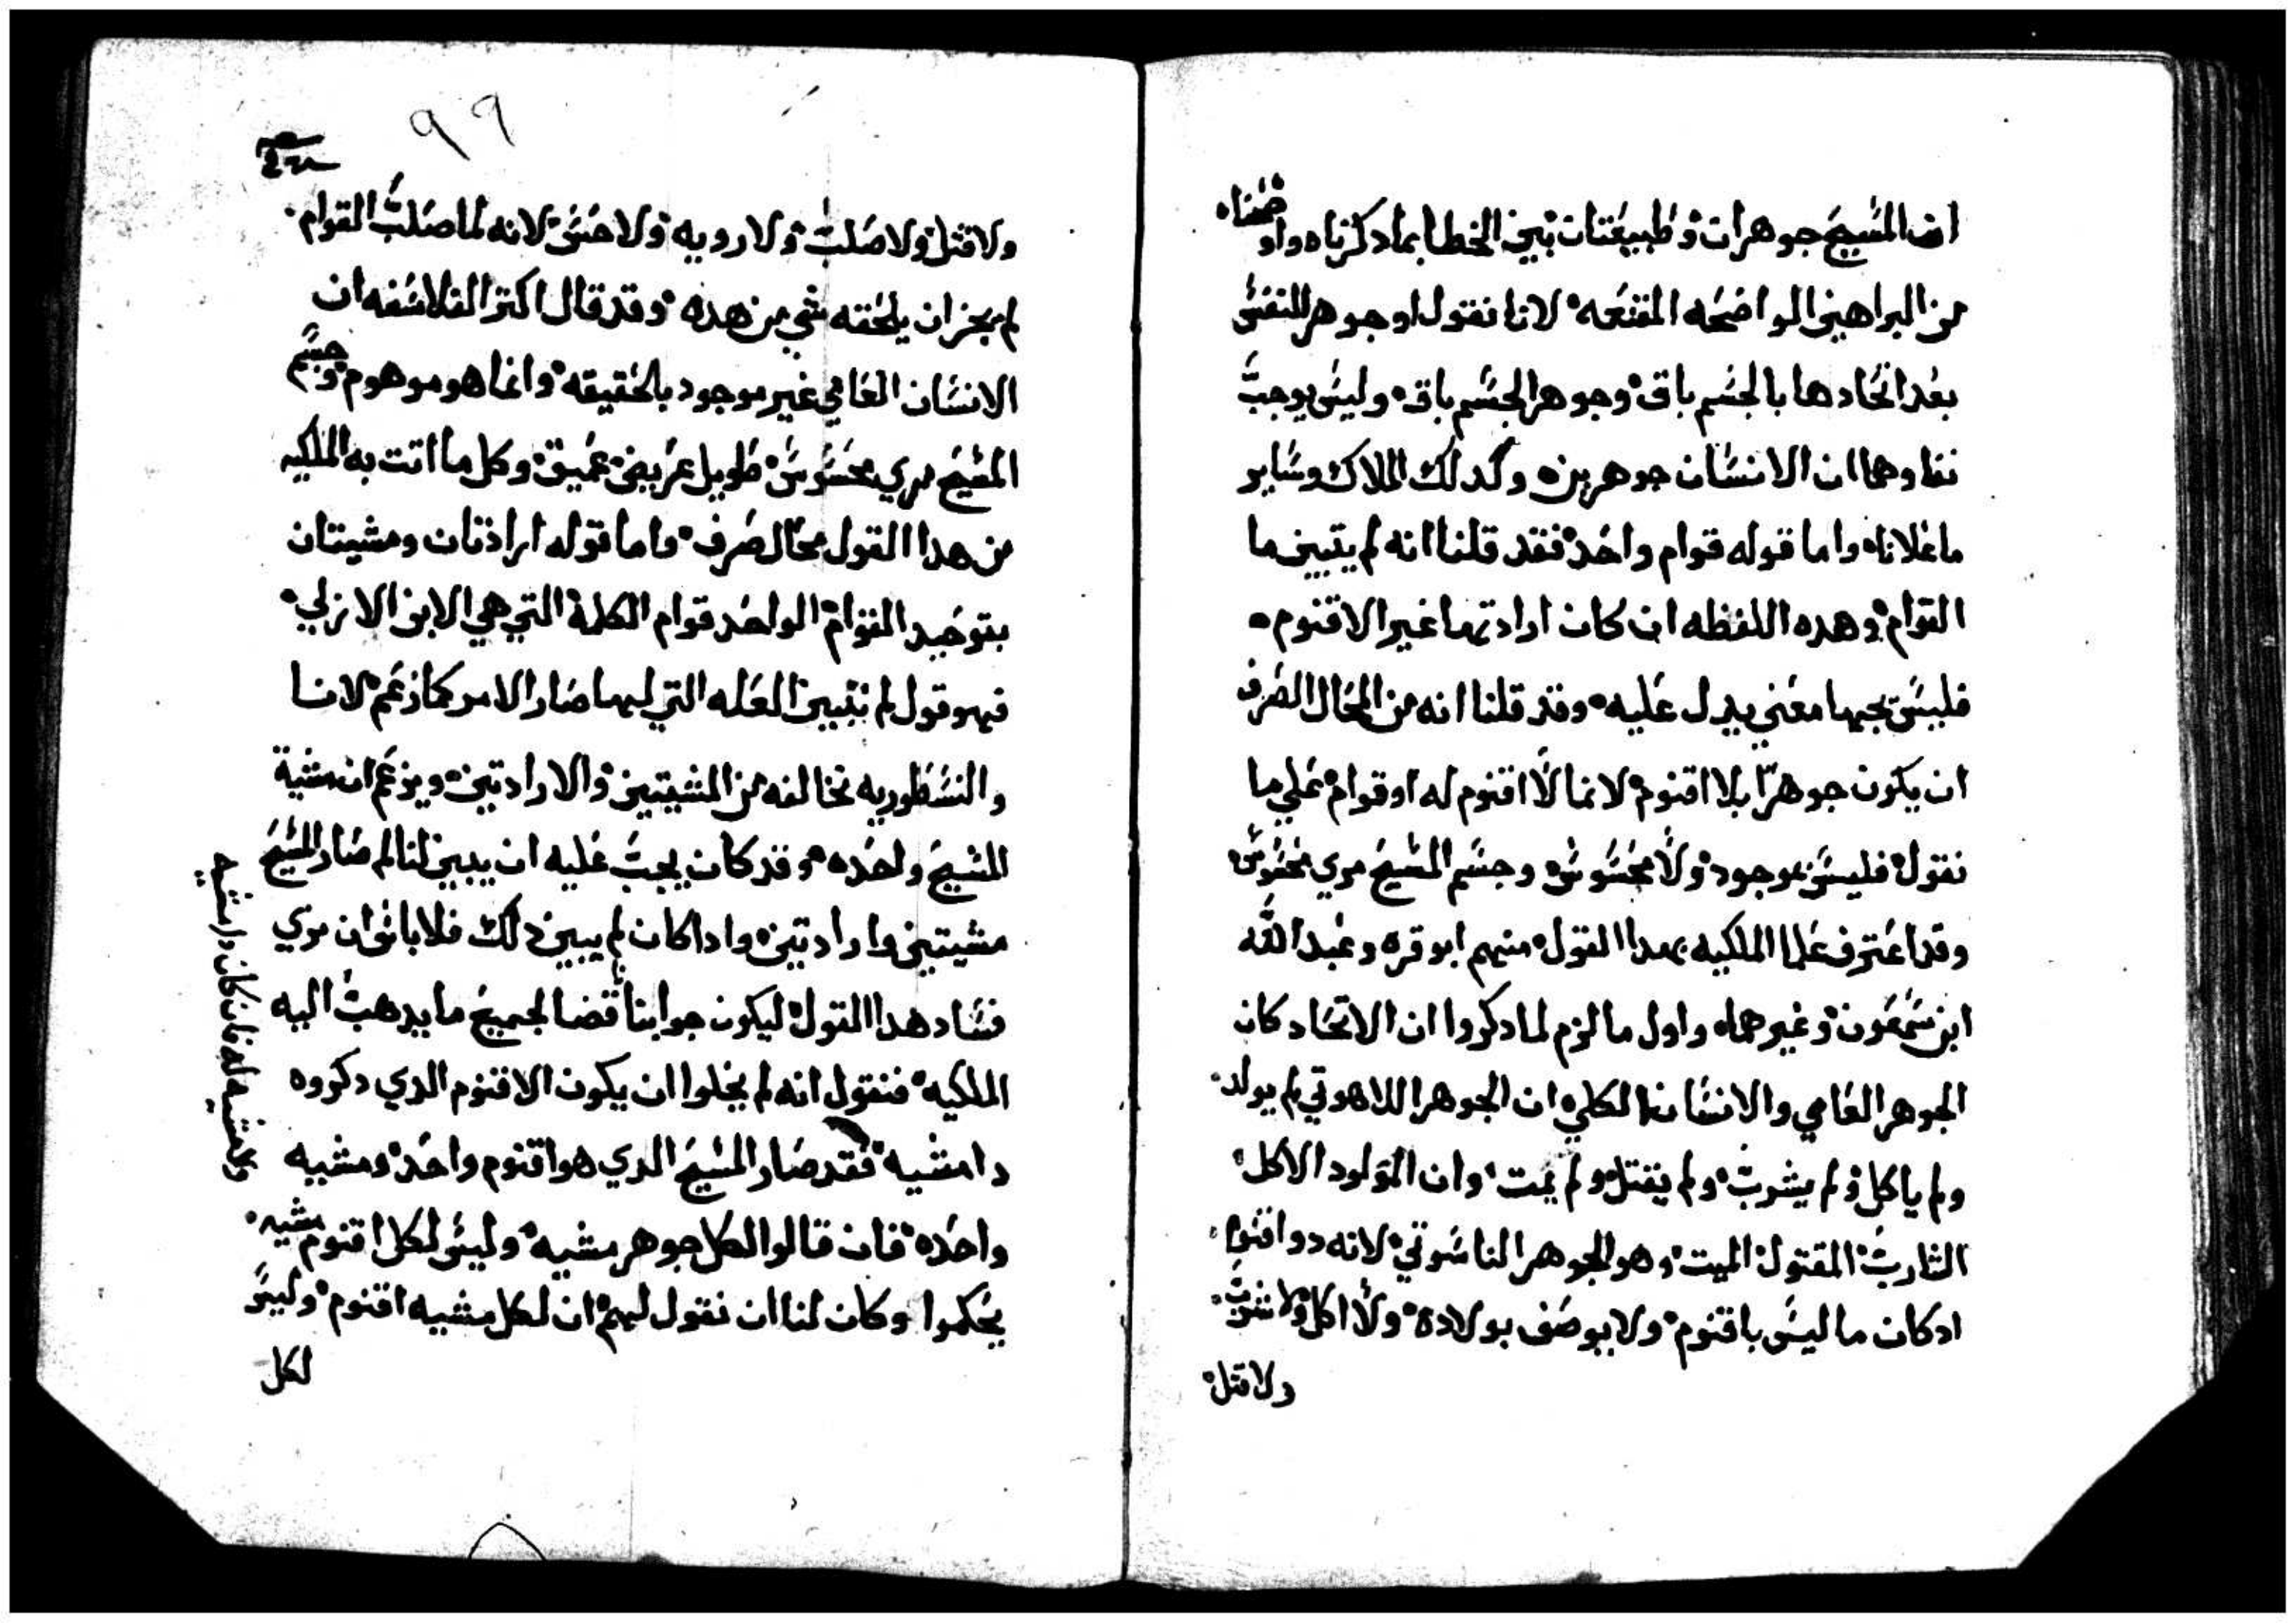 ان المسيح جوهران وطبيعتان بين الخطا بما دكرناه واوضحناه
من البراهين الواضحه المقنعه لانا نقول ان جوهر النفس
بعد اتحادها بالجسم باق وجوهر الجسم باق وليس يوجب
نفاوهما ان الانسان جوهرين وكدلك الملاك وساير
ما علاناه واما قوله قوام واحد فقد قلنا انه لم يتبين ما
القوام وهده اللفظه ان كان ارادتها غير الاقنوم
فليس تحتها معني يدل عليه وقد قلنا انه من المحال الصرف
ان يكون جوهرا بلا اقنوم لانما لا اقنوم له او قوام علي ما
نقول فليس بموجود ولا محسوس وجسم المسيح مري محسوس
وقد اعترف علما الملكيه بهدا القول منهم ابو قره وعبد الله
ابن سمعون وغيرهما واول ما لزم لما دكروا ان الاتحاد كان
الجوهر العامي والانسان الكلي ان الجوهر اللاهوتي لم يولد
ولم ياكل ولم يشرب ولم يقتل ولم يمت وان المولود الاكل
الشارب المقتول الميت وهو الجوهر الناسوتي لانه دو اقنوم
ادكان ما ليس باقنوم ولا يوصف بولاده ولا اكل ولا شرب
ولا قتل
٩٩
ولا قتل ولا صلب ولا رويه ولا حس لانه لما صلب القوام
لم يجز ان يلحقه شي من هده وقد قال اكتر الفلاسفه ان
الانسان العامي غير موجود بالحقيقه وانما هو موهوم وجسم
المسيح مري محسوس طويل عريض عميق وكل ما اتت به الملكيه
من هدا القول محال صرف واما قوله ارادتان ومشيتان
بتوحيد القوام الواحد قوام الكلمة التي هي الابن الازلي
فهو قول لم تتبين العله التي لها صار الامر كما زعم لانا
والنسطوريه نخالفه من المشيتين والارادتين ويزعم ان مشية
المسيح واحده وقد كان يجب عليه ان يبين لنا لم صار المسيح
مشيتين وارادتين وادا كان لم يبين دلك فلا باس ان نري
فساد هدا القول ليكون جوابنا ناقضا لجميع ما يدهب اليه
الملكيه فنقول انه لم يخلوا ان يكون الاقنوم الدي دكروه
دا مشيه فقد صار المسيح الدي هو اقنوم واحد ومشيه
واحده فان قالوا لكل جوهر مشيه وليس لكل اقنوم مشيه
يحكموا وكان لنا ان نقول لهم ان لكل مشيه اقنوم وليس
لكل